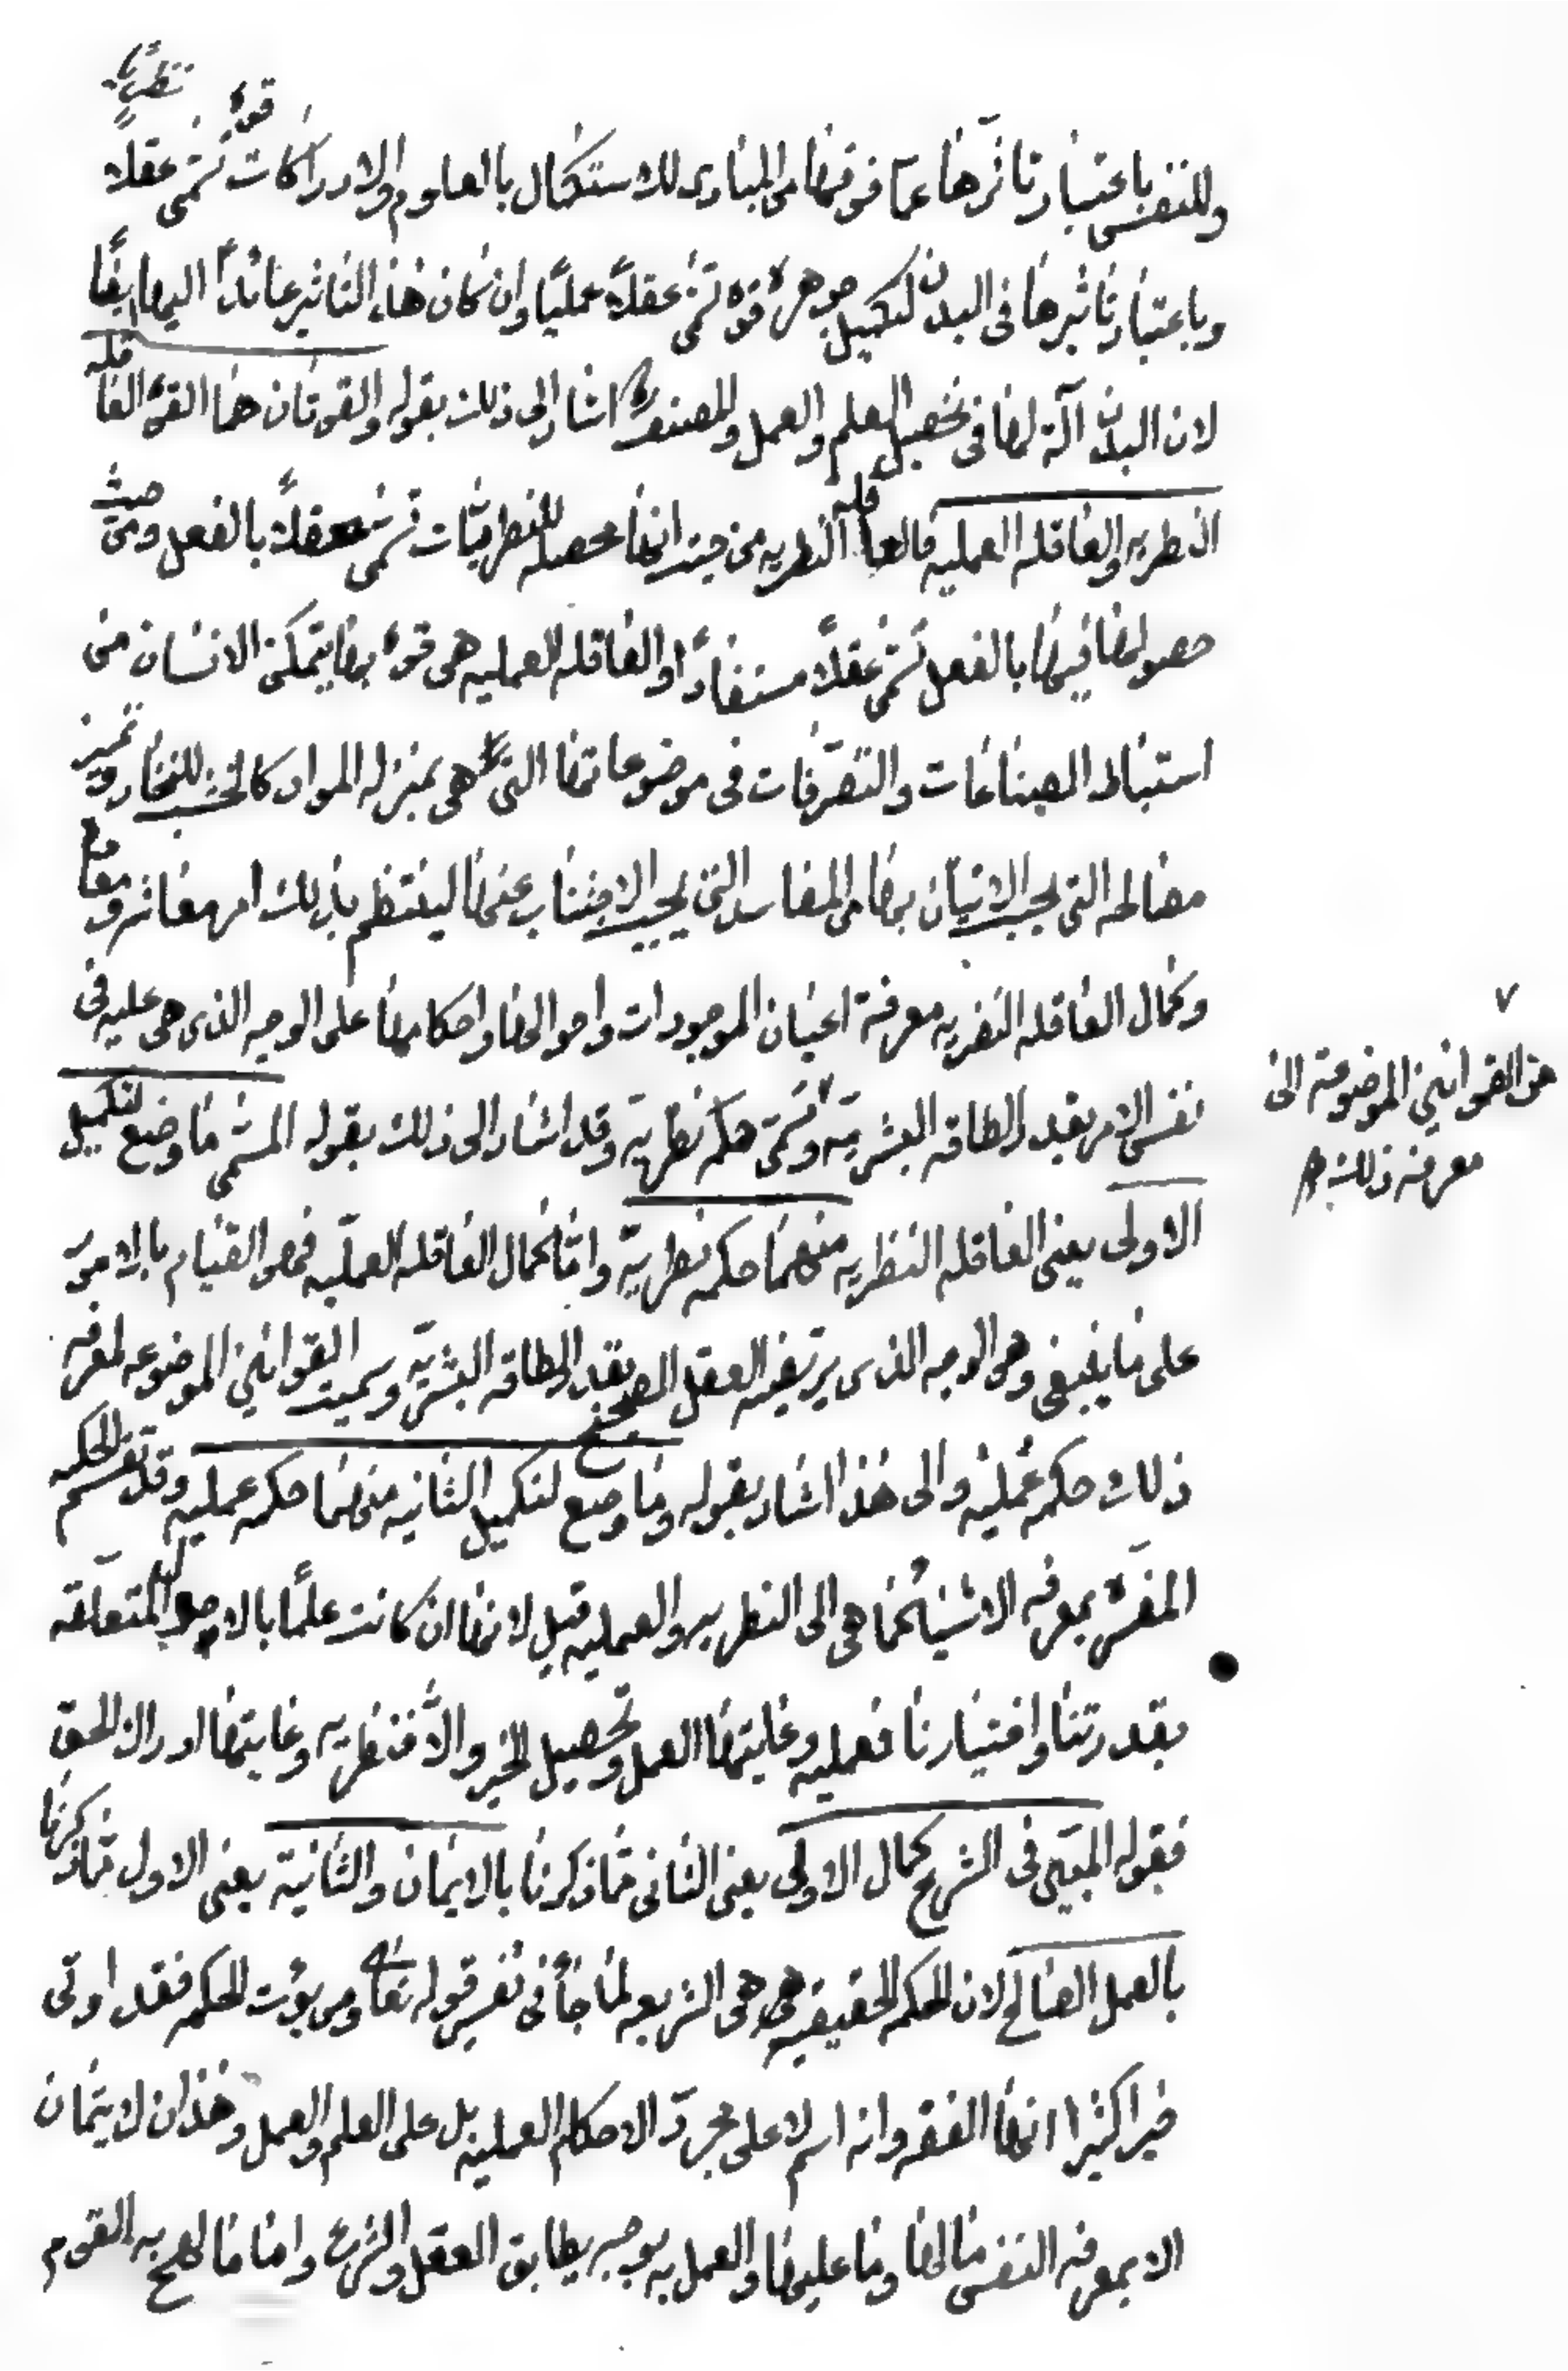 وللنفس باعتبار تأثرها عما فوقها من المبادى للاستكمال بالعلوم والادراكات قوة تسمى عقلاً نظريًا
وباعتبار تاثيرها فى البدن لتكميل جوهره قوة تسمى عقلاً عمليًا وان كان هذا التاثير عائدًا اليها ايضًا
لان البدن آلة لها فى تحصيل العلم والعمل وللمصنف اشار الى ذلك بقوله والقوتان هما القوة العاقله
النظريه والعاقله العمليه فالعاقله النظريه من حيث انها محصله للنظريات تسمى عقلاً بالفعل ومن حيث
حصولها فيها بالفعل تسمى عقلاً مستفادًا والعاقله العمليه هى قوة بها يتمكن الانسان من
استنباط الصناعات والتصرفات فى موضوعاتها التى هى بمنزله المواد كالخشب للنجار وتميز
مصالحه التى يجب الاتيان بها من المفاسد التى يجب الاجتناب عنها لينتظم بذلك امر معاشه ومعاده
وكمال العاقله النظريه معرفة اعيان الموجودات واحوالها واحكامها على الوجه الذى هى عليه فى
نفس الامر بقدر الطاقه البشرية وتسمى حكمة نظرية وقد اشار الى ذلك بقوله المسمى ما وضع لتكميل
الاولى يعنى العاقله النظريه منهما حكمه نظرية واما كمال العاقله العملية فهو القيام بالامور
على ما ينبغى وهو الوجه الذى يرتضيه العقل الصحيح بقدر الطاقه البشرية وسميت القوانين الموضوعه لمعرفه
ذلك حكمه عمليه والى هذا اشار بقوله وما وضع لتكميل الثانيه منهما حكمه عمليه وقد تقسم الحكمه
المفسرة بمعرفه الاشياء كما هى الى النظريه والعمليه قيل لانها ان كانت علمًا بالامور المتعلقه
بقدرتنا واختيارنا فعمليه وغايتها العمل وتحصيل الخير والا فنظريه وغايتها ادراك الحق
فقوله المبين فى الشرح كمال الاولى يعنى الثانى مما ذكرنا بالايمان والثانية يعنى الاول مما ذكرنا
بالعمل الصالح لان الحكمه الحقيقيه هى هى الشريعه لما جاء فى تفسير قوله تعالى ومن يؤت الحكمه فقد اوتى
خيرا كثيرا انها الفقه وانه اسم لا على مجرد الاحكام العمليه بل على العلم والعمل وهذان لا يتمان
الا بمعرفه النفس ما لها وما عليها والعمل به بوجه يطابق العقل والشرع واما ما لهج به القوم
٧
من القوانين الموضوعة الى
معرفه ذلك